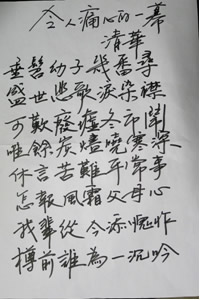 令人痛心的一幕
清華
垂髫幼子幾番尋
盛世悲歌淚染襟
可歎廢墟冬市闃
唯餘炭燼曉寒深
休言苦難平常事
怎報風霜父母心
我輩從今添愧怍
樽前誰為一沉吟